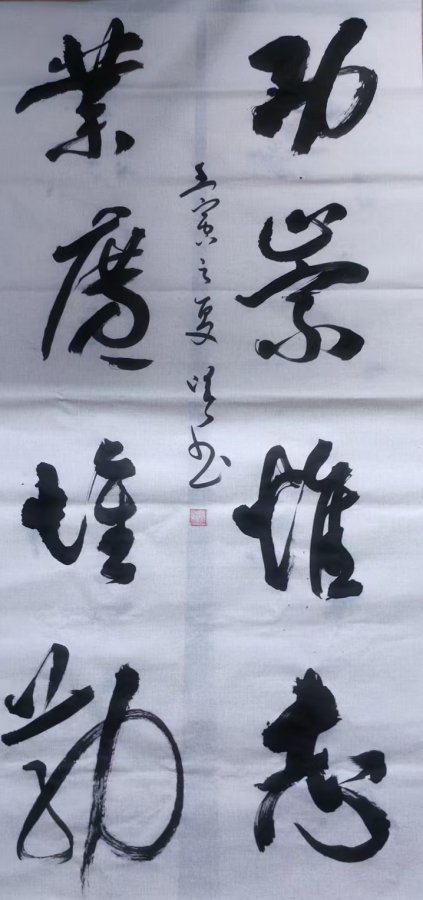 功崇惟志
業廣惟勤
壬寅之夏
书